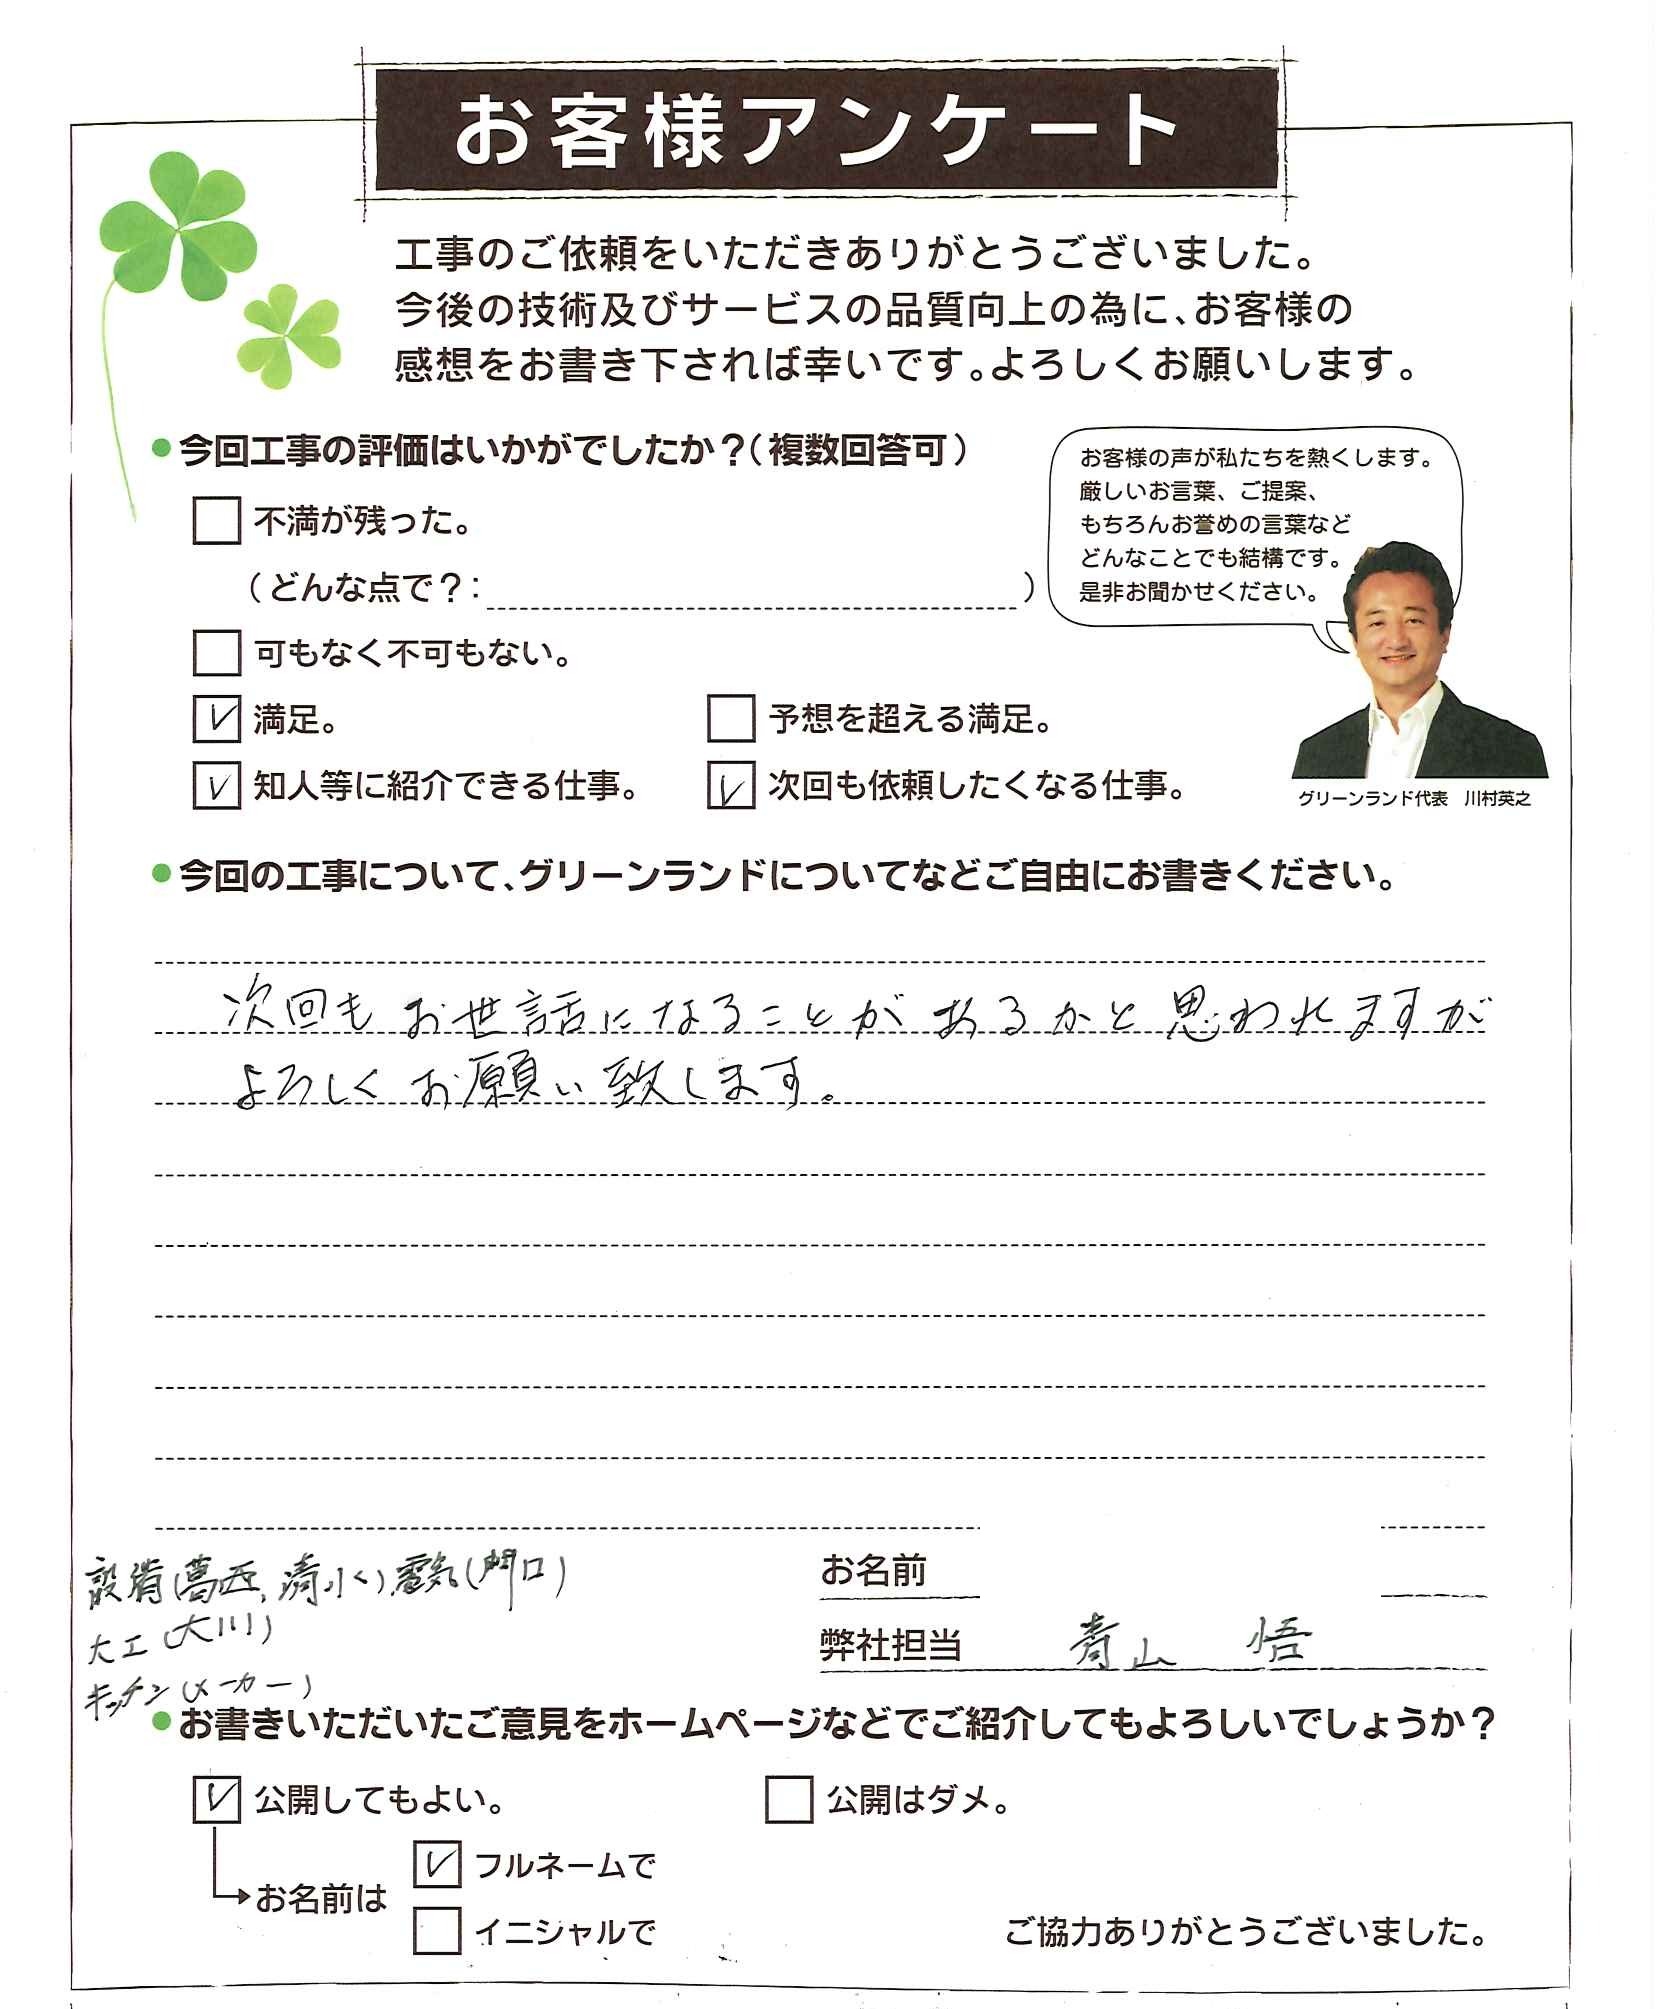 お客様アンケート
工事のご依頼をいただきありがとうございました。
今後の技術及びサービスの品質向上の為に、お客様の
感想をお書き下されば幸いです。よろしくお願いします。
●今回工事の評価はいかがでしたか？（複数回答可）
不満が残った。
（どんな点で？： ）
可もなく不可もない。
満足。
予想を超える満足。
知人等に紹介できる仕事。
次回も依頼したくなる仕事。
お客様の声が私たちを熱くします。
厳しいお言葉、ご提案、
もちろんお誉めの言葉など
どんなことでも結構です。
是非お聞かせください。
グリーンランド代表　川村英之
●今回の工事について、グリーンランドについてなどご自由にお書きください。
次回もお世話になることがあるかと思われますが
よろしくお願い致します。
設備(葛西、清水)、電気(門口)
大工(大川)
キッチン(メーカー)
お名前
弊社担当 青山 悟
●お書きいただいたご意見をホームページなどでご紹介してもよろしいでしょうか？
公開してもよい。
公開はダメ。
お名前は
フルネームで
イニシャルで
ご協力ありがとうございました。